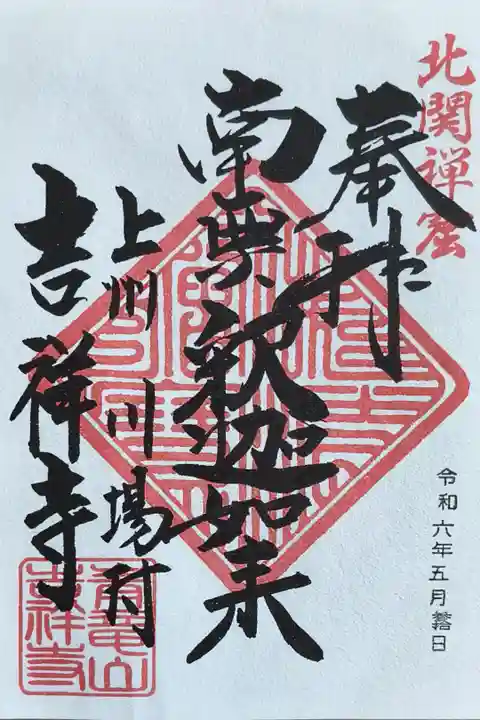 北関禅窟
奉拝
南無釈迦如来
上州川場村
吉祥寺
令和六年五月吉日
青龍山
吉祥寺